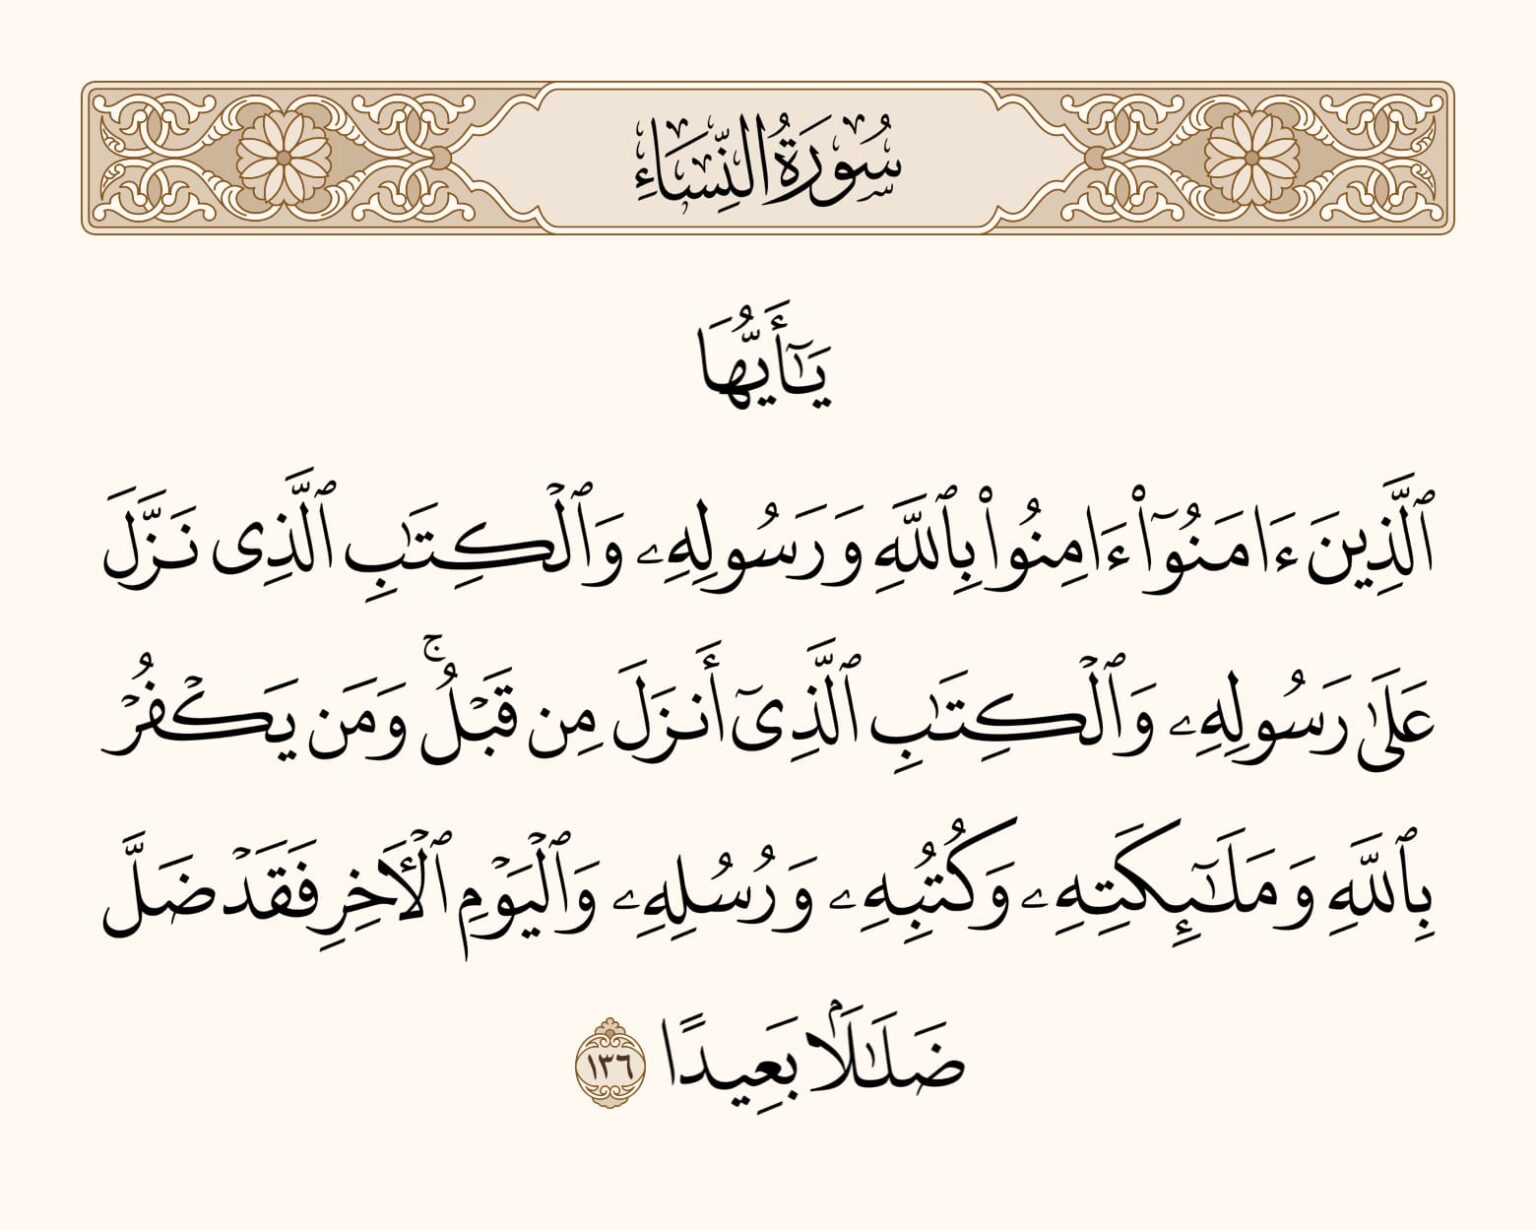 سُورَةُ النِّسَاءِ
يَٰٓأَيُّهَا
ٱلَّذِينَ ءَامَنُوٓا۟ ءَامِنُوا۟ بِٱللَّهِ وَرَسُولِهِۦ وَٱلْكِتَٰبِ ٱلَّذِى نَزَّلَ
عَلَىٰ رَسُولِهِۦ وَٱلْكِتَٰبِ ٱلَّذِىٓ أَنزَلَ مِن قَبْلُ ۚ وَمَن يَكْفُرْ
بِٱللَّهِ وَمَلَٰٓئِكَتِهِۦ وَكُتُبِهِۦ وَرُسُلِهِۦ وَٱلْيَوْمِ ٱلْـَٔاخِرِ فَقَدْ ضَلَّ
ضَلَٰلًۢا بَعِيدًا ١٣٦